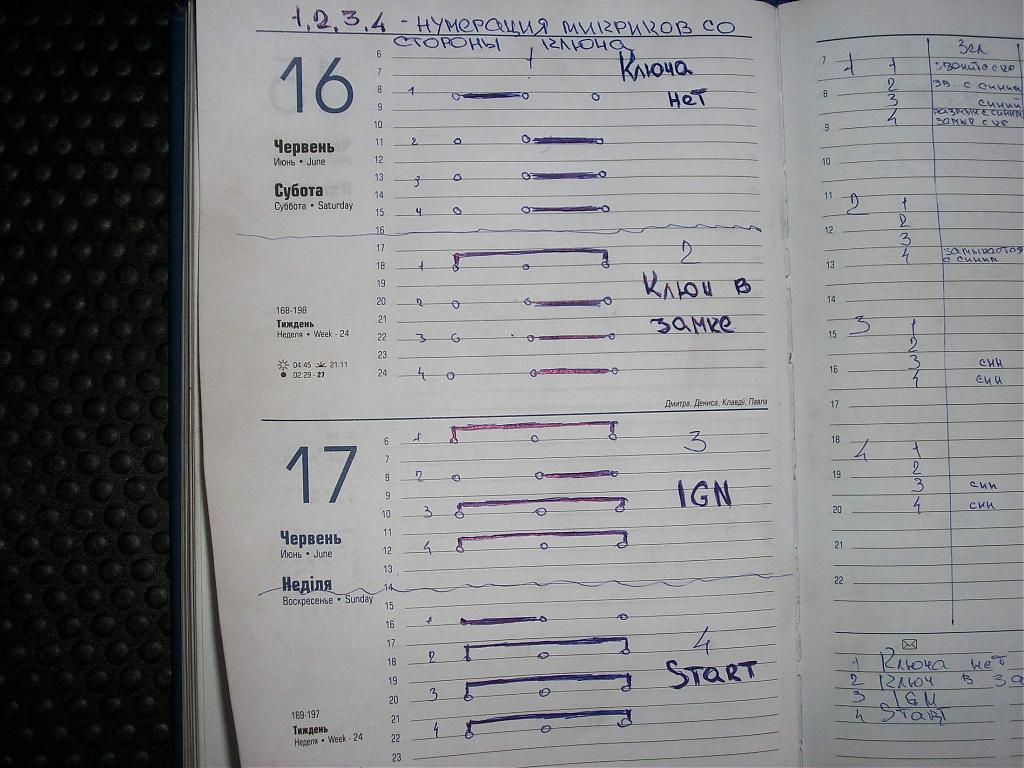 1,2,3,4 - НУМЕРАЦИЯ МИКРИКОВ СО
СТОРОНЫ КЛЮЧА
16
Червень
Июнь • June
Субота
Суббота • Saturday
168-198
Тиждень
Неделя • Week - 24
04:45 21:11
02:29 - 27
6
7
8 1
9
10
11 2
12
13 3
14
15 4
16
Ключа
нет
17
18 1
19
20 2
21
22 3
23
24 4
2
Ключ в
замке
Дмитра, Дениса, Клавдії, Павла
17
Червень
Июнь • June
Неділя
Воскресенье • Sunday
169-197
Тиждень
Неделя • Week - 24
6 1
7
8 2
9
10 3
11
12 4
13
14
3
IGN
15
16 1
17
18 2
19
20 3
21
22 4
23
4
START
Зел
7 1 1
8 2 зв. с синим
3 синий
9 4 размык с синим
10
11 2 1
12 2
3
13 4 замыкается
с синим
14
15 3 1
2
16 3 син
4 син
17
18 4 1
19 2
3 син
20 4 син
21
22
1 Ключа нет
2 Ключ в за
3 IGN
4 START